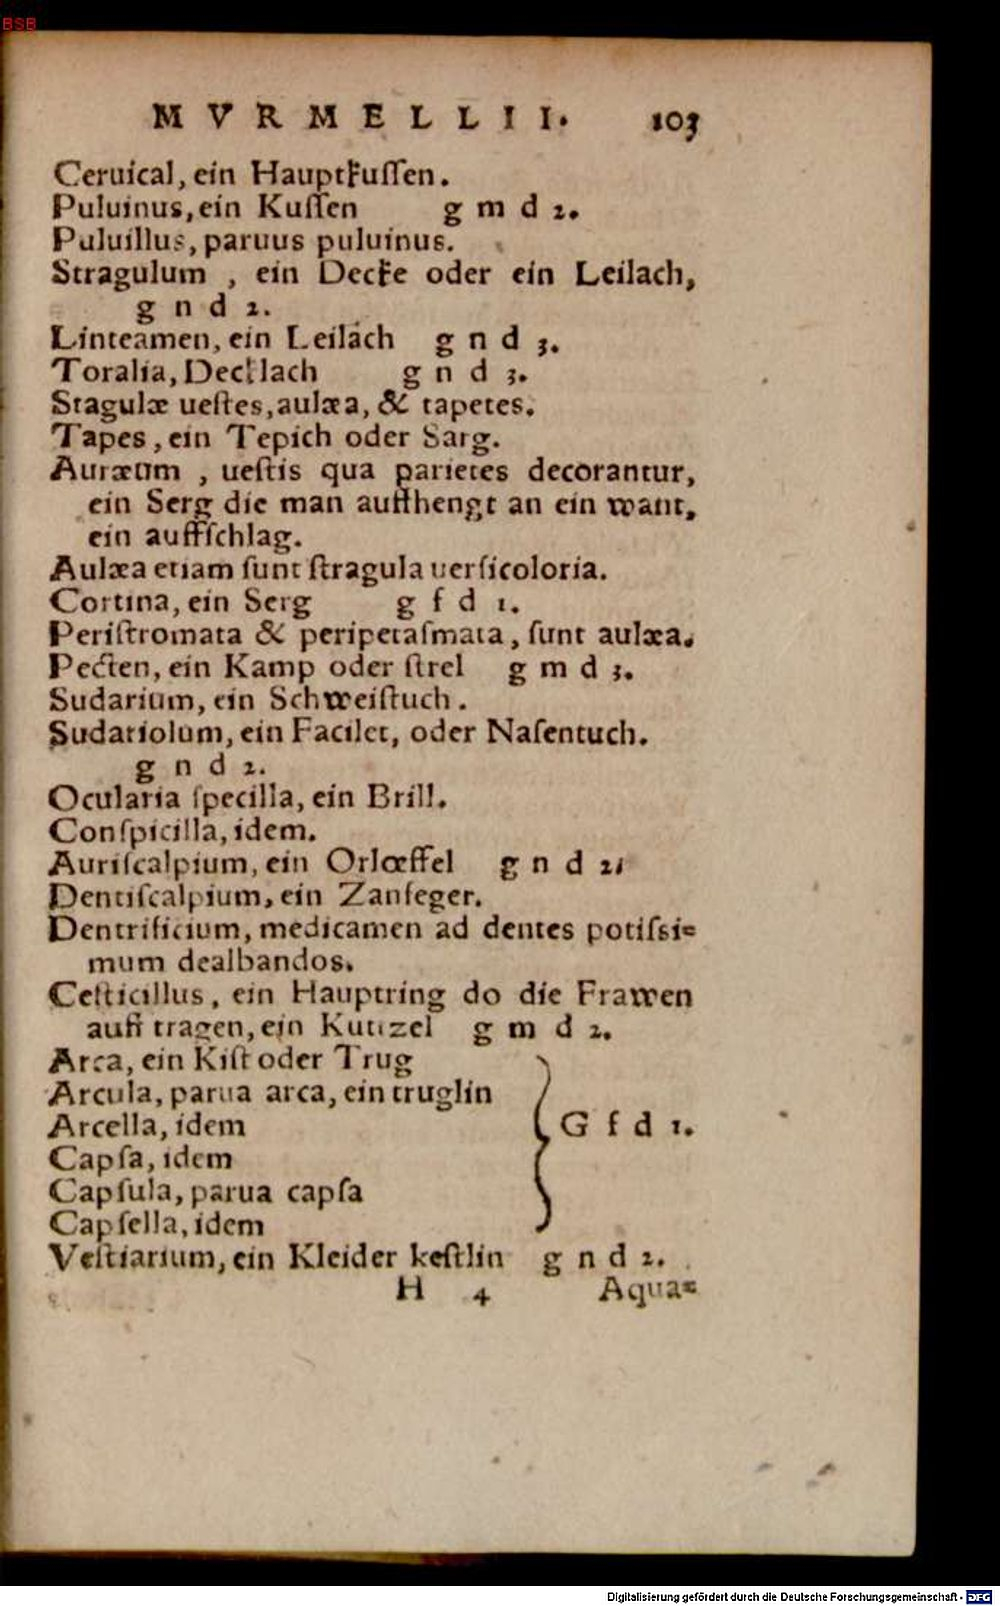 BSB
MVRMELLII. 103
Ceruical, ein Hauptkuſſen.
Puluinus, ein Kuſſen g m d 2.
Puluillus, paruus puluinus.
Stragulum , ein Decke oder ein Leilach,
g n d 2.
Linteamen, ein Leilach g n d 3.
Toralia, Decklach g n d 3.
Stagulæ ueſtes, aulæa, & tapetes.
Tapes, ein Tepich oder Sarg.
Auræum , ueſtis qua parietes decorantur,
ein Serg die man auffhengt an ein want,
ein auffſchlag.
Aulæa etiam ſunt ſtragula uerſicoloria.
Cortina, ein Serg g f d 1.
Periſtromata & peripetaſmata, ſunt aulæa.
Pecten, ein Kamp oder ſtrel g m d 3.
Sudarium, ein Schweiſtuch.
Sudariolum, ein Facilet, oder Naſentuch.
g n d 2.
Ocularia ſpecilla, ein Brill.
Conſpicilla, idem.
Auriſcalpium, ein Orlœffel g n d 2.
Dentiſcalpium, ein Zanfeger.
Dentrificium, medicamen ad dentes potiſsi=
mum dealbandos.
Ceſticillus, ein Hauptring do die Frawen
auff tragen, ein Kutzel g m d 2.
Arca, ein Kiſt oder Trug
Arcula, parua arca, ein truglin
Arcella, idem G f d 1.
Capſa, idem
Capſula, parua capſa
Capſella, idem
Veſtiarium, ein Kleider keſtlin g n d 2.
H 4 Aqua=
Digitalisierung gefördert durch die Deutsche Forschungsgemeinschaft - DFG